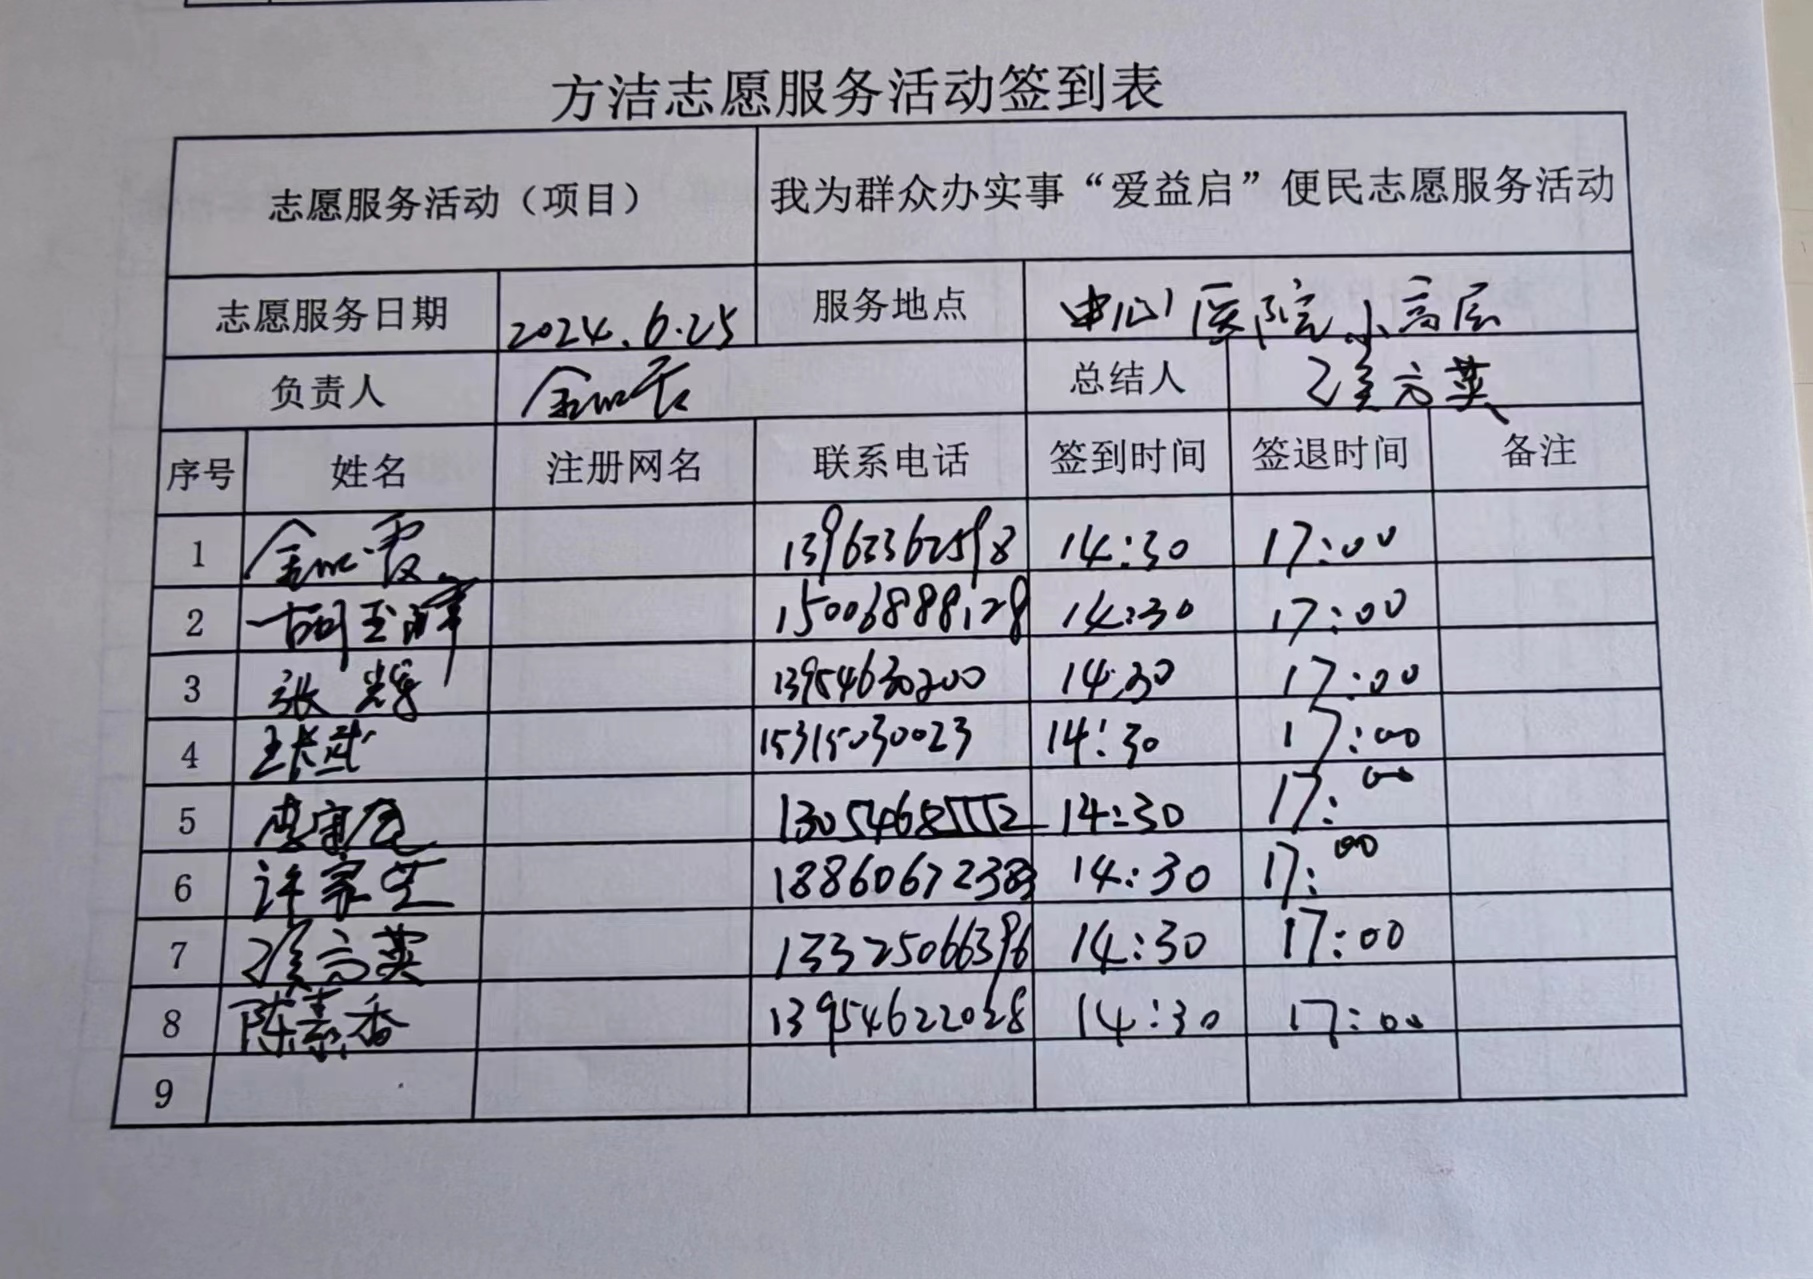 方洁志愿服务活动签到表
志愿服务活动（项目） 我为群众办实事“爱益启”便民志愿服务活动
志愿服务日期 2024.6.25 服务地点 中心医院小高层
负责人 总结人
序号 姓名 注册网名 联系电话 签到时间 签退时间 备注
1 13963362598 14:30 17:00
2 15006888128 14:30 17:00
3 张辉 13954630200 14:30 17:00
4 15315030023 14:30 17:00
5 13054685552 14:30 17:00
6 许家芝 14:30 17:00
7 13325066396 14:30 17:00
8 陈素香 13954622028 14:30 17:00
9